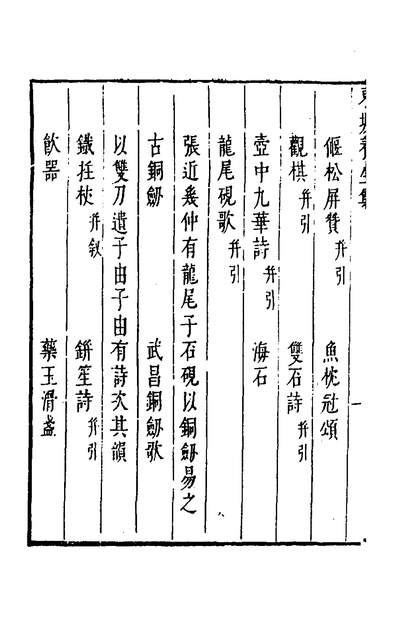 偃松屏贊并引　魚枕冠頌
觀棋并引　雙石詩并引
壺中九華詩并引　海石
龍尾硯歌并引
張近幾仲有龍尾子石硯以銅劒易之
古銅劒　武昌銅劒歌
以雙刀遺子由子由有詩次其韻
鐵拄杖并敘　缾笙詩并引
飲器　藥玉滑盞